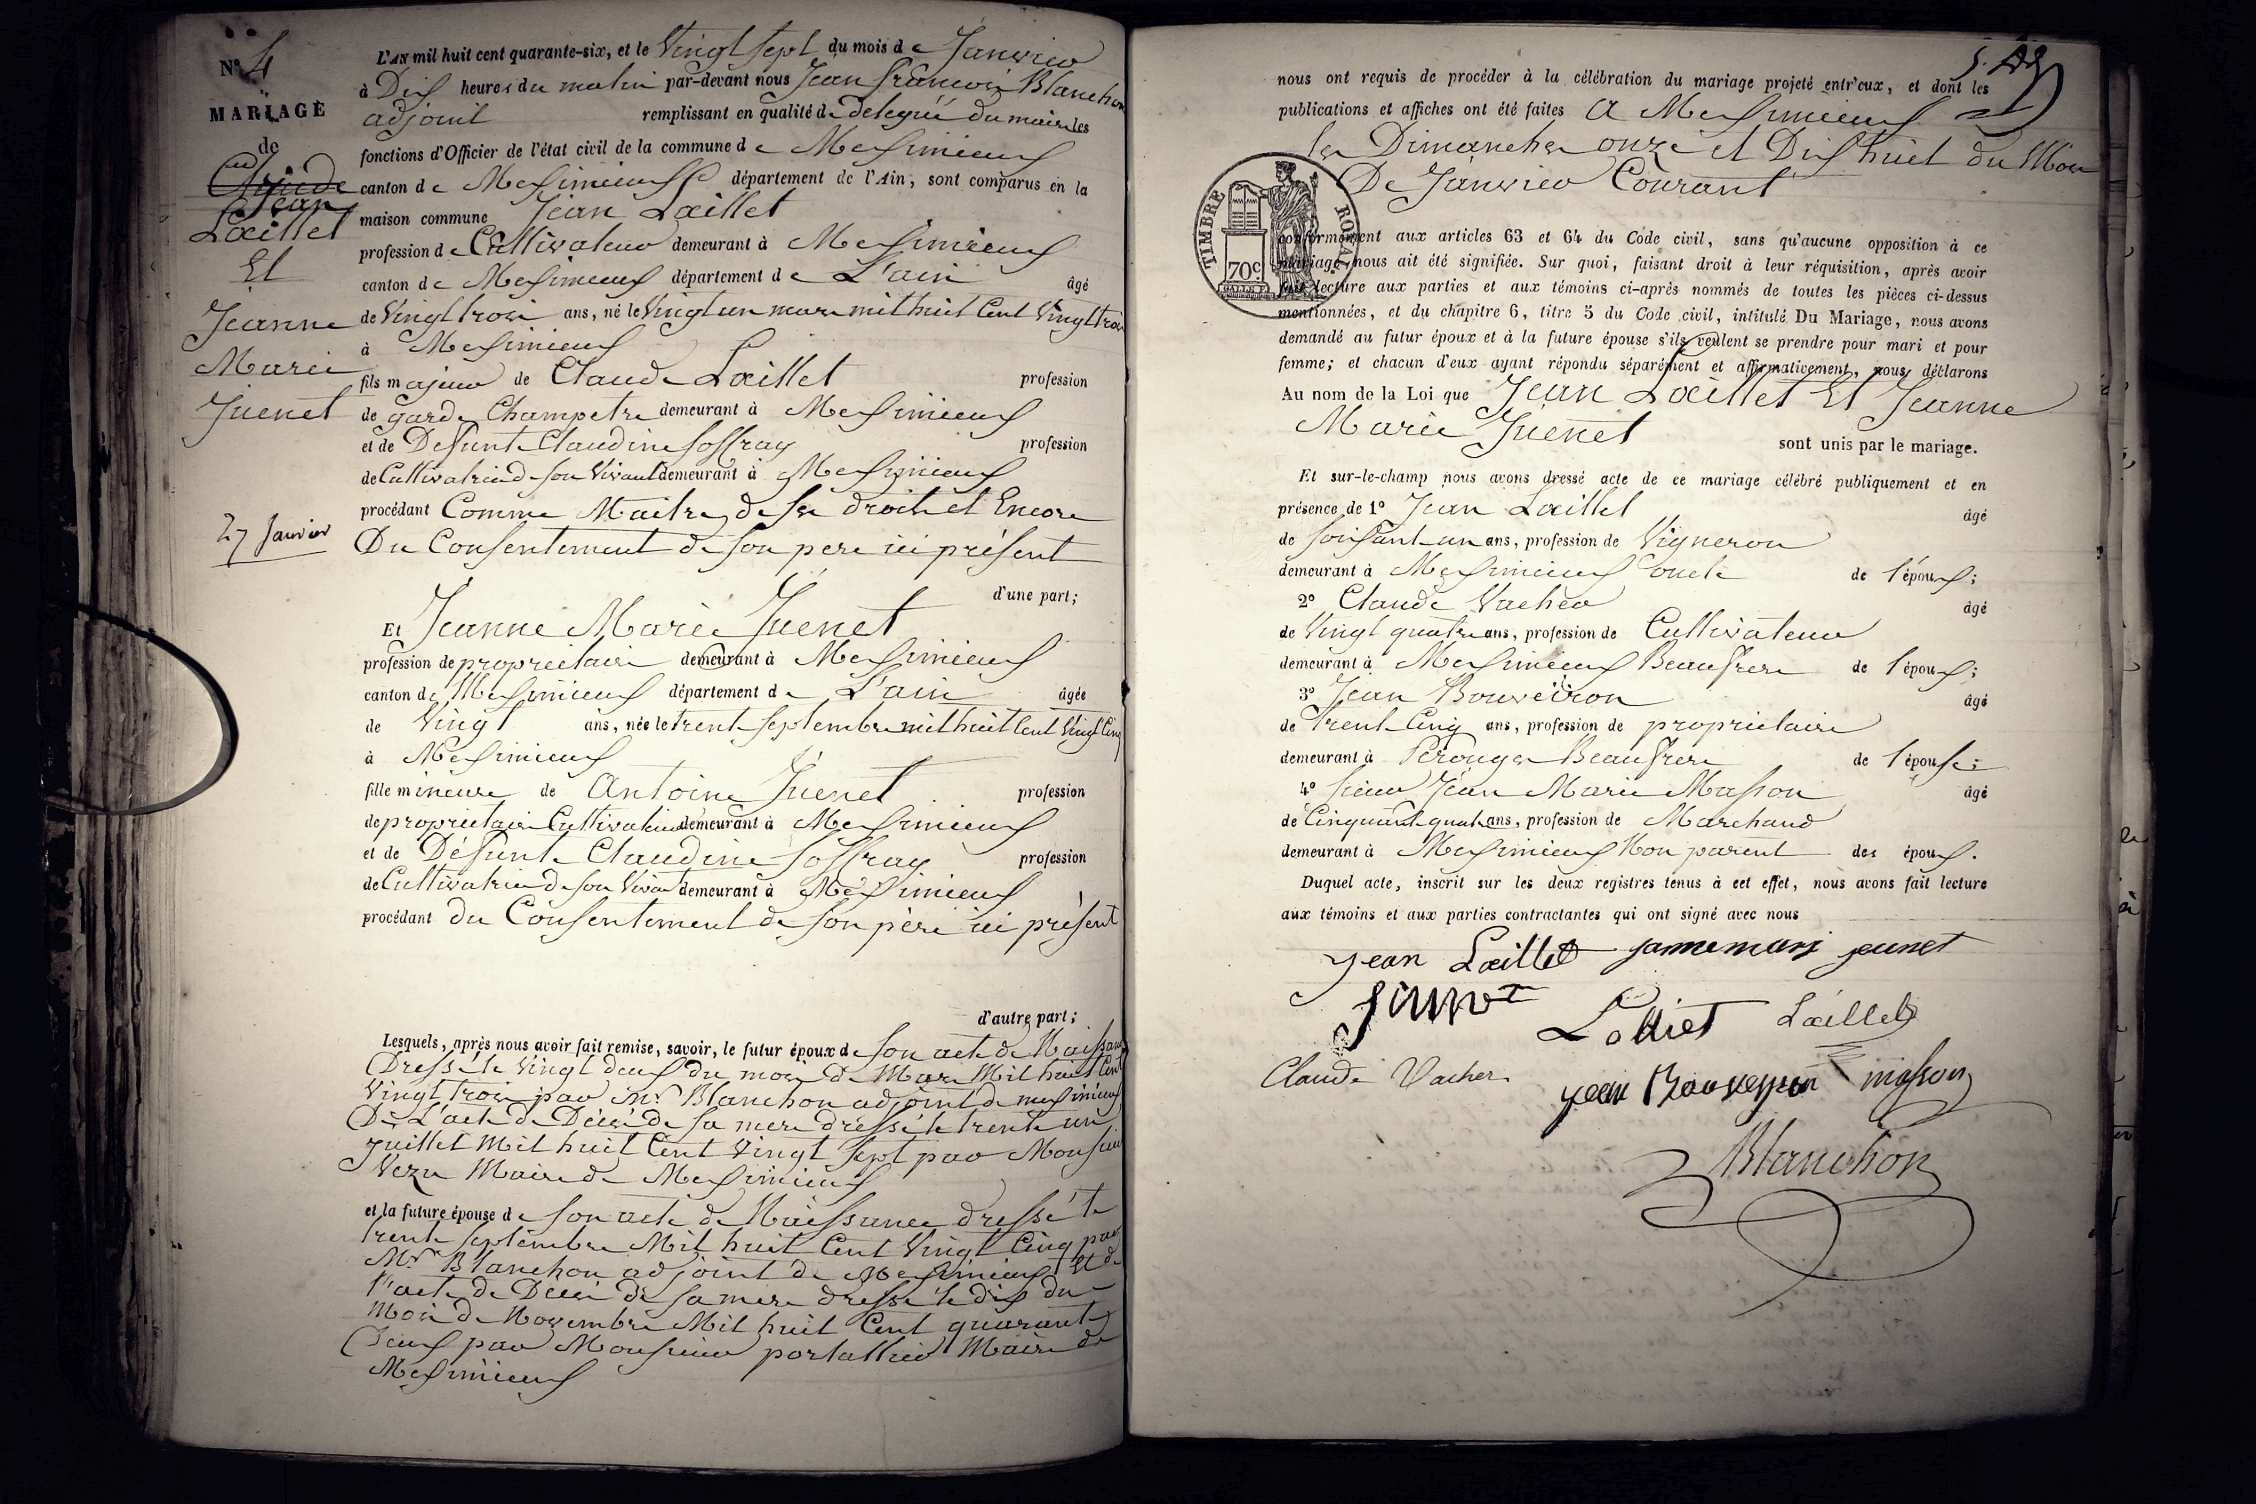 N° 4
MARIAGE
de
Jean
Laillet
Et
Jeanne
Marie
Juenet
27 Janvier
L'AN mil huit cent quarante-six, et le Vingt Sept du mois de Janvier
à Dix heures du matin par-devant nous Jean François Blanchon
adjoint remplissant en qualité de délégué du maire les
fonctions d'Officier de l'état civil de la commune de Meximieux
canton de Meximieux département de l'Ain, sont comparus en la
maison commune Jean Laillet
profession de Cultivateur demeurant à Meximieux
canton de Meximieux département de L'ain âgé
de Vingt trois ans, né le Vingt un mars mil huit Cent Vingt trois
à Meximieux
fils majeur de Claude Laillet profession
de garde Champetre demeurant à Meximieux
et de Defunte Claudine Soffray profession
de Cultivatrice de son Vivant demeurant à Meximieux
procédant Comme Maitre de ses droits et Encore
Du Consentement de son pere ici présent
d'une part;
Et Jeanne Marie Juenet
profession de propriétaire demeurant à Meximieux
canton de Meximieux département de L'ain âgée
de Vingt ans, née le trente septembre mil huit Cent Vingt Cinq
à Meximieux
fille mineure de Antoine Juenet profession
de propriétaire Cultivateur demeurant à Meximieux
et de Défunte Claudine Soffray profession
de Cultivatrice de son Vivant demeurant à Meximieux
procédant du Consentement de son père ici présent
d'autre part;
Lesquels, après nous avoir fait remise, savoir, le futur époux de son acte de Naissance
Dressé le Vingt deux du mois de Mars Mil huit Cent
Vingt trois par Mr Blanchon adjoint de meximieux
De L'acte de Décès de sa mere dressé le trente un
juillet Mil huit Cent Vingt Sept par Monsieur
Vezu Maire de Meximieux
et la future épouse de son acte de Naissance dressé le
trente septembre Mil huit Cent Vingt Cinq par
Mr Blanchon adjoint de Meximieux Et de
l'acte de Décès de sa mere dressé le dix du
Mois de Novembre Mil huit Cent quarante
Deux par Monsieur portallier Maire de
Meximieux
nous ont requis de procéder à la célébration du mariage projeté entr'eux, et dont les
publications et affiches ont été faites à Meximieux
les Dimanches onze et Dix huit du Mois
De Janvier Courant
TIMBRE ROYAL
70c
conformément aux articles 63 et 64 du Code civil, sans qu'aucune opposition à ce
mariage nous ait été signifiée. Sur quoi, faisant droit à leur réquisition, après avoir
fait lecture aux parties et aux témoins ci-après nommés de toutes les pièces ci-dessus
mentionnées, et du chapitre 6, titre 5 du Code civil, intitulé Du Mariage, nous avons
demandé au futur époux et à la future épouse s'ils veulent se prendre pour mari et pour
femme; et chacun d'eux ayant répondu séparément et affirmativement, nous déclarons
Au nom de la Loi que Jean Laillet Et Jeanne
Marie Juenet sont unis par le mariage.
Et sur-le-champ nous avons dressé acte de ce mariage célébré publiquement et en
présence de 1° Jean Laillet âgé
de soixante un ans, profession de Vigneron
demeurant à Meximieux oncle de l'époux;
2° Claude Vacher âgé
de Vingt quatre ans, profession de Cultivateur
demeurant à Meximieux Beaufrere de l'époux;
3° Jean Bouveiron âgé
de trente Cinq ans, profession de propriétaire
demeurant à Pérouges Beaufrere de l'épouse;
4° Sieur Jean Marie Masson âgé
de Cinquante quatre ans, profession de Marchand
demeurant à Meximieux Non parent des époux.
Duquel acte, inscrit sur les deux registres tenus à cet effet, nous avons fait lecture
aux témoins et aux parties contractantes qui ont signé avec nous
jean Laillet janne mari jeunet
Lalliet Laillet
Claude Vacher jean Bouveyron masson
Blanchon